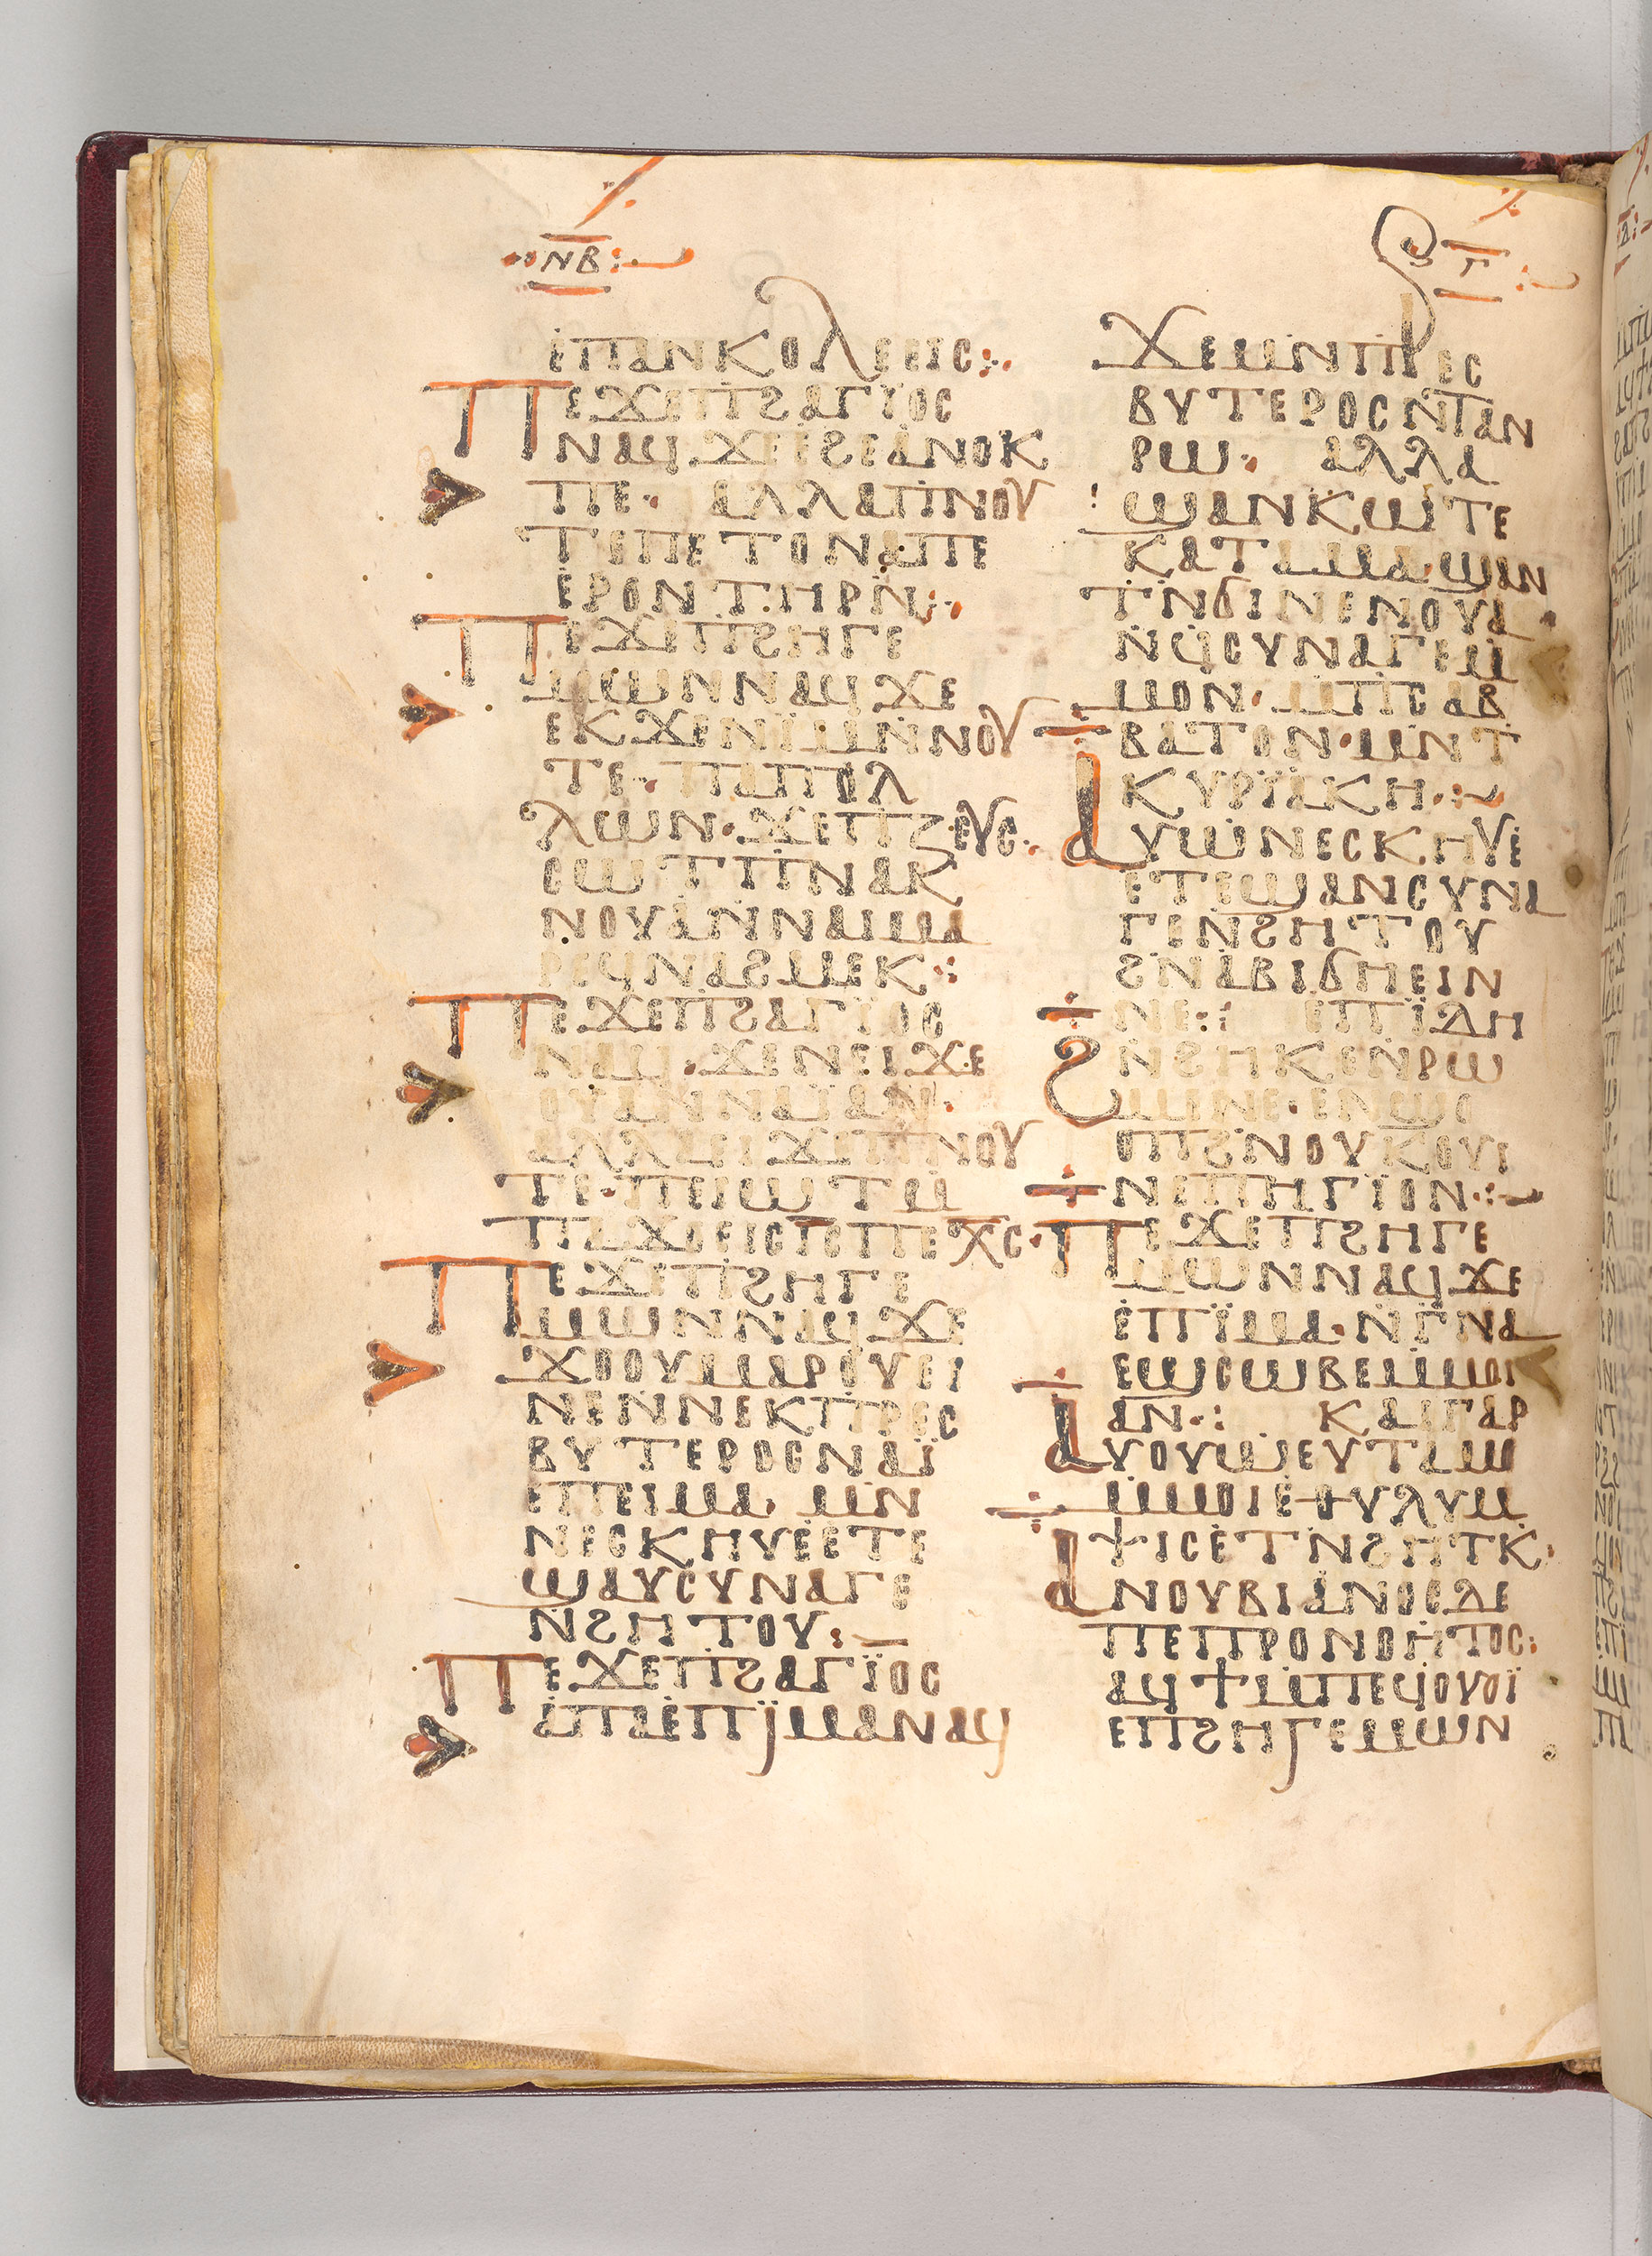 ⲛⲃ
ⲅ
ⲉⲡⲁⲛⲕⲟⲗⲉⲉⲓⲥ:·
ⲡⲉϫⲉⲡϩⲁⲅⲓⲟⲥ
ⲛⲁϥ ϫⲉⲉϩⲉⲁⲛⲟⲕ
ⲡⲉ· ⲁⲗⲗⲁⲡⲛⲟⲩ
ⲧⲉⲡⲉⲧⲟⲛⲁⲡⲉ
ⲉⲣⲟⲛⲧⲏⲣⲛ̄:·
ⲡⲉϫⲉⲡϩⲏⲅⲉ
ⲙⲱⲛⲛⲁϥϫⲉ
ⲉⲕϫⲉⲛⲓⲙⲛ̄ⲛⲟⲩ
ⲧⲉ· ⲡⲁⲡⲟⲗ
ⲗⲱⲛ· ϫⲉⲡⲍⲉⲩⲥ·
ⲥⲱⲧⲡⲛⲁⲕ
ⲛⲟⲩⲁⲛ̄ⲛⲁⲓⲙⲁ
ⲣⲉϥⲛⲁϩⲙⲉⲕ:
ⲡⲉϫⲉⲡϩⲁⲅⲓⲟⲥ
ⲛⲁϥ·ϫⲉⲛⲉⲓϫⲉ
ⲟⲩⲁⲛ̄ⲛⲁⲓⲁⲛ·
ⲁⲗⲗⲁⲉⲓϫⲉⲡⲛⲟⲩ
ⲧⲉ·ⲡⲉⲓⲱⲧⲙ̄
ⲡⲁϫⲟⲉⲓⲥⲓ̄ⲥ̄ⲡⲉⲭ̄ⲥ̄·
ⲡⲉϫⲉⲡϩⲏⲅⲉ
ⲙⲱⲛⲛⲁϥϫⲉ
ϫⲟⲟⲩⲙⲁⲣⲟⲩⲉⲓ
ⲛⲉⲛ̄ⲛⲉⲕⲡⲣⲉⲥ
ⲃⲩⲧⲉⲣⲟⲥⲛⲁⲓ̈
ⲉⲡⲉⲓⲙⲁ· ⲙⲛ̄
ⲛⲉⲥⲕⲏⲩⲉⲉⲧⲉ
ϣⲁⲩⲥⲩⲛⲁⲅⲉ
ⲛ̄ϩⲏⲧⲟⲩ:
ⲡⲉϫⲉⲡϩⲁⲅⲓ̈ⲟⲥ
ⲁⲡⲁⲉⲡⲓ̈ⲙⲁⲛⲁϥ
ϫⲉⲙⲛ̄ⲡⲣⲉⲥ
ⲃⲩⲧⲉⲣⲟⲥⲛ̄ⲧⲁⲛ
ⲣⲱ· ⲁⲗⲗⲁ
ϣⲁⲛⲕⲱⲧⲉ
ⲕⲁⲧⲁⲙⲁ·ϣⲁⲛ
ⲧⲛ̄ϭⲓⲛⲉⲛⲟⲩⲁ
ⲛϥ̄ⲥⲩⲛⲁⲅⲉⲙ̄
ⲙⲟⲛ· ⲙ̄ⲡⲥⲁⲃ
ⲃⲁⲧⲟⲛ·ⲙⲛⲧ
ⲕⲩⲣⲓ̈ⲁⲕⲏ·:
ⲁⲩⲱⲛⲉⲥⲕⲏⲩⲉ
ⲉⲧⲉϣⲁⲛⲥⲩⲛⲁ
ⲅⲉⲛ̄ϩⲏⲧⲟⲩ
ϩⲛⲁⲃⲓϭⲏⲉⲓⲛ
ⲛⲉ:· ⲉⲡⲓ̈ⲇⲏ
ϩⲛ̄ϩⲏⲕⲉⲛ̄ⲣⲱ
ⲙⲛⲉ·ⲉⲛⲱϣ
ⲟⲡϩⲛⲟⲩⲕⲟⲩⲓ
ⲛⲉⲡⲏⲅⲓ̈ⲟⲛ·:
ⲡⲉϫⲉⲡϩⲏⲅⲉ
ⲙⲱⲛⲛⲁϥϫⲉ
ⲉⲡⲓ̈ⲙⲁ·ⲛ̄ⲅⲛⲁ
ⲉϣⲥⲱⲃⲉⲙ̄ⲙⲟⲓ
ⲁⲛ·: ⲕⲁⲓⲅⲁⲣ
ⲁⲩⲟⲩⲱϣⲉⲩⲧⲁⲙ
ⲙ̄ⲙⲟⲓⲉⲑⲩⲗⲩⲙ
ⲯⲓⲥⲉⲧⲛ̄ϩⲏⲧⲕ·
ⲁⲛⲟⲩⲃⲓⲁⲛⲟⲥⲇⲉ
ⲡⲉⲡⲣⲟⲛⲟⲏⲧⲟⲥ:
ⲁϥϯⲙ̄ⲡⲉϥⲟⲩⲟⲓ̈
ⲉⲡϩⲏⲅⲉⲙⲱⲛ